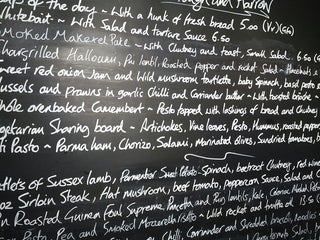 of the day ~ With a hunk of fresh bread 5.00 (V)
Whitebait ~ With Salad and tartare Sauce 6.50
Smoked Mackerel Pate ~ With Chutney and toast, Small Salad. 6.50
Chargrilled Halloumi, Puy lentil, Roasted Pepper and rocket Salad
Sweet red onion Jam and Wild mushroom tartlette, baby Spinach, basil pesto
Mussels and Prawns in garlic Chilli and Coriander butter
Whole ovenbaked Camembert ~ Pesto topped with lashings of bread and Chutney
Vegetarian Sharing board ~ Artichokes, Vine leaves, Pesto, Hummus, roasted
Parma ham, Chorizo, Salami, Marinated olives, Sundried tomatoes,
of Sussex lamb, Parmentier Sweet Potato, Spinach, beetroot Chutney, red wine
oz Sirloin Steak, flat mushroom, beef tomato, peppercorn Sauce, Salad and
Roasted Guinea fowl Supreme, Pancetta and Puy lentils, kale
Pesto, Pea and Smoked Mozzarella risotto ~ Wild rocket and truffle oil 13.50
Chilli, Coriander and Shredded